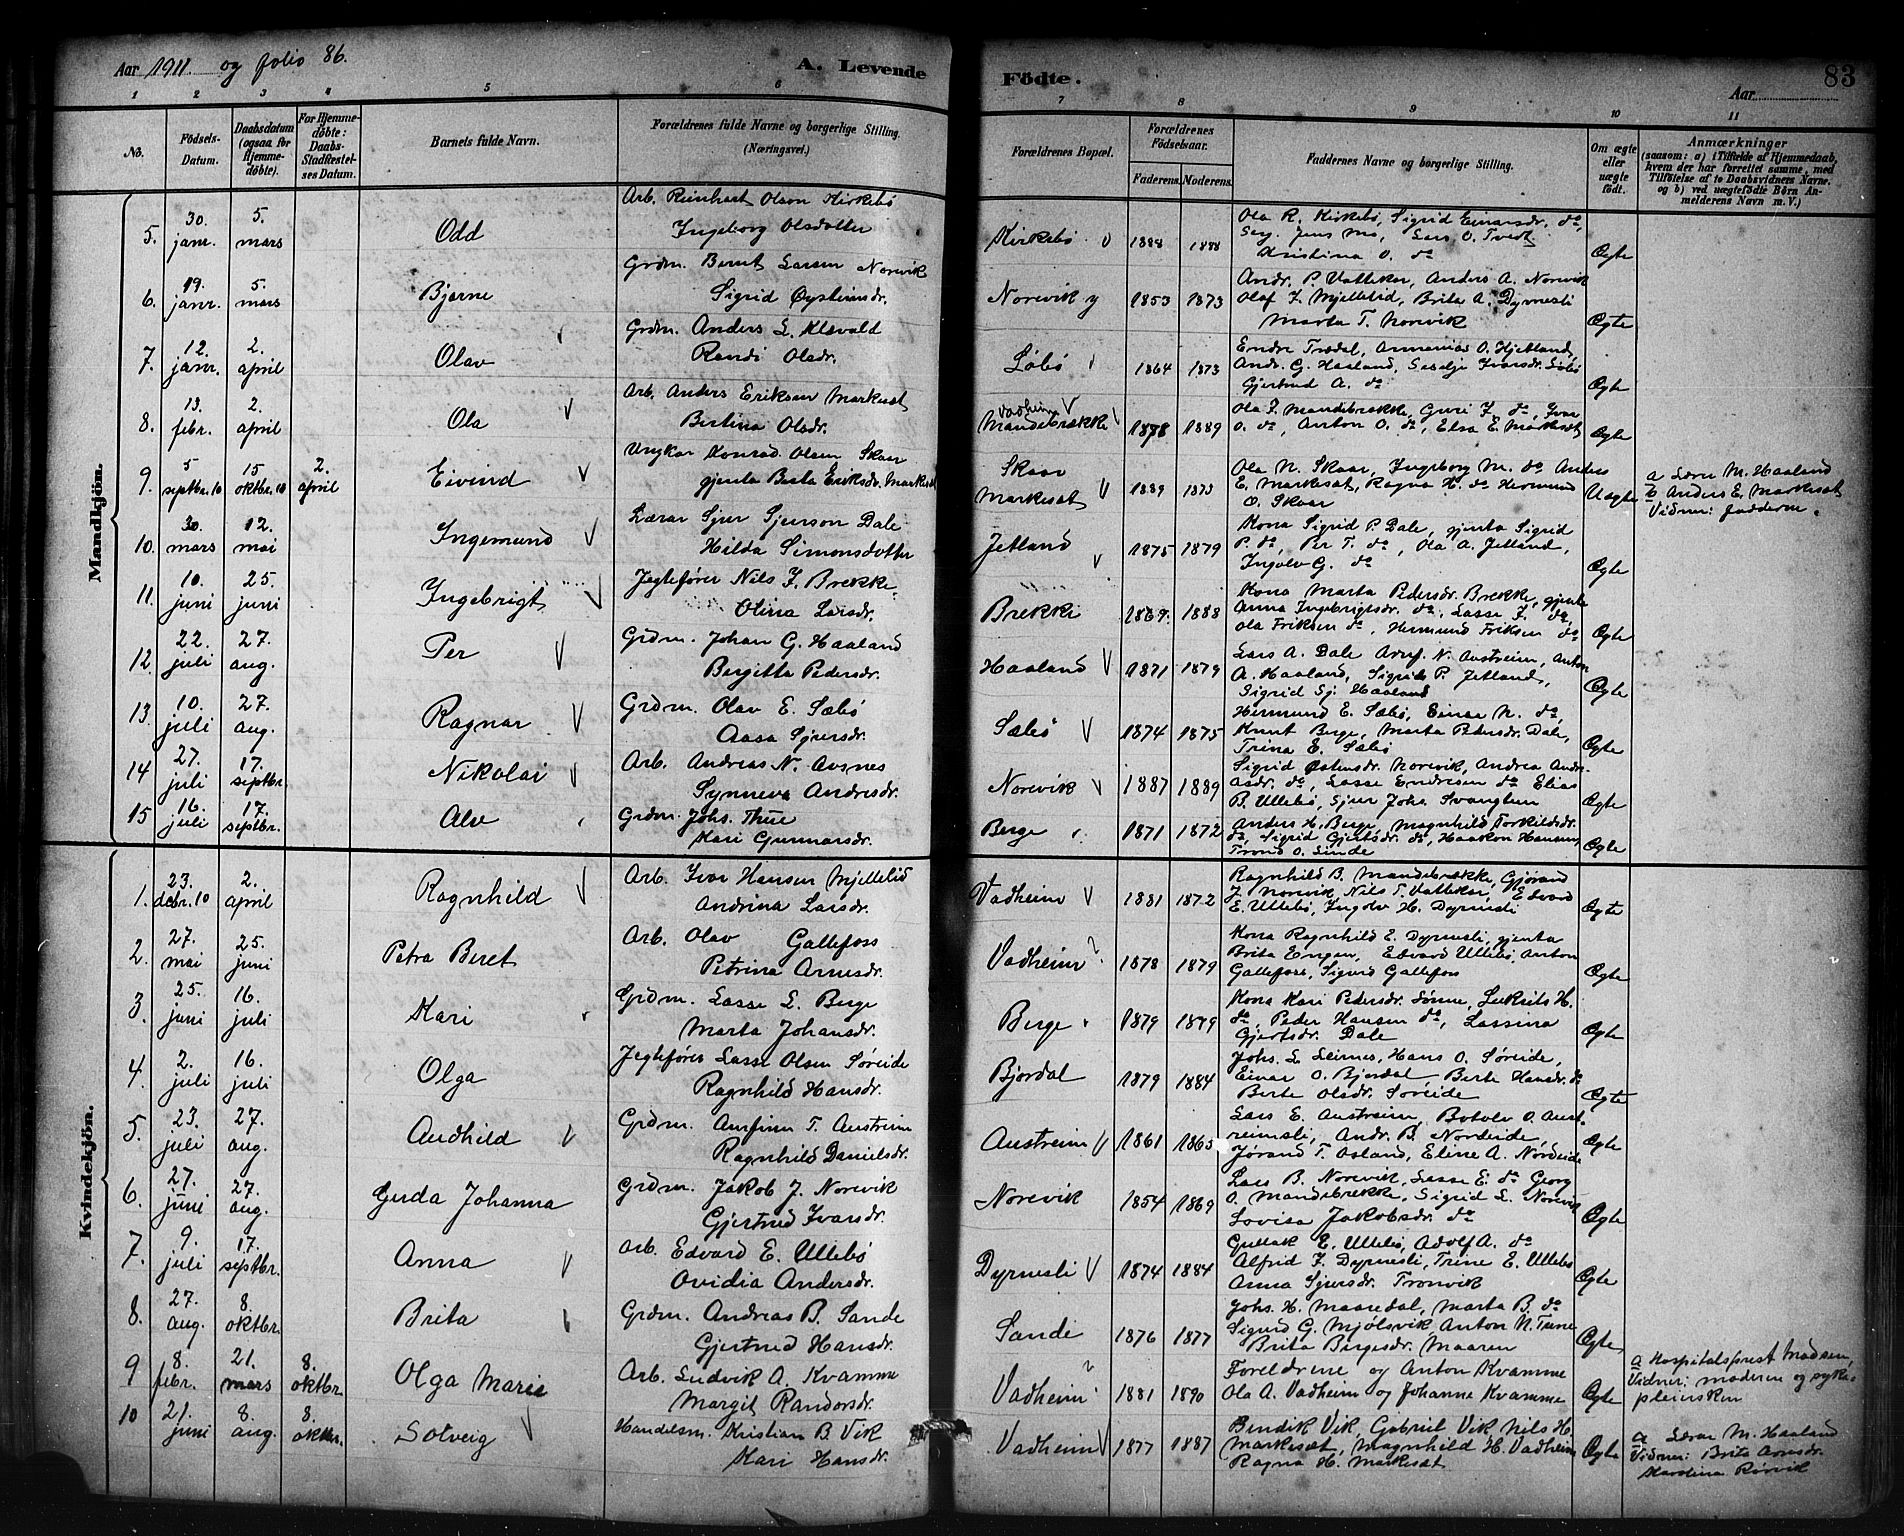 Aar 1911 og folio 86. A. Levende Födte. Aar 83
1 2 3 4 5 6 7 8 9 10 11
No.
Födsels-Datum.
Daabsdatum (ogsaa for Hjemme-döbte).
For Hjemme-döbte: Daabs-Stadfæstel-ses Datum.
Barnets fulde Navn.
Forældrenes fulde Navne og borgerlige Stilling. (Næringsvei.)
Forældrenes Bopæl.
Forældrenes Födselsaar.
Faderens. Moderens.
Faddernes Navne og borgerlige Stilling.
Om ægte eller uægte födt.
Anmærkninger
(saasom: a) i Tilfælde af Hjemmedaab, hvem der har forrettet samme, med Tilföielse af to Daabsvidners Navne, og b) ved uægtefödte Börn An-melderens Navn m. V.)
Mandkjön.
5. 30. janr. 5. mars Odd Arb. Reinhart Olson Kirkebö
Ingeborg Olsdotter Kirkebö 1884 1888 Ola R. Kirkebö, Sigrid Einarsdr. do,
Serg. Jens Mo, Lars O. Tvedt
Kristina O. do Ægte
6. 19. janr. 5. mars Bjarne Grdm. Bernt Larsen Norevik
Sigrid Øysteinsdr. Norevik 1853 1873 Andr. P. Vattekar, Anders A. Norevik
Olaf J. Mjellelid, Brita A. Dyrnesli
Marta T. Norevik Ægte
7. 12. janr. 2. april Olav Grdm. Anders L. Klævold
Randi Olsdr. Löbö 1864 1873 Endre Trædal, Armenias O. Hjetland,
Andr. G. Haaland, Seselje Ivarsdr. Löbö
Gjertrud A. do Ægte
8. 13. febr. 2. april Ola Arb. Anders Eriksen Markesæt
Bertina Olsdr. Vadheim Mandebrække 1878 1889 Ola J. Mandebrække, Guri J. do, Ivar
O. do, Anton O. do, Elsa E. Markesæt Ægte
9. 5 septbr. 10 15 oktbr. 10 2. april Eivind Ungkar Konrad Olsen Skaar
gjenta Berta Eriksdr. Markesæt Skaar Markesæt 1889 1873 Ola N. Skaar, Ingeborg M. do Anders
E. Markesæt, Ragna H. do Hermund
O. Skaar Uægte a Lærer M. Haaland
b Anders E. Markesæt
Vidner: fadderne.
10. 30. mars 12. mai Ingemund Lærar Sjur Sjurson Dale
Hilda Simonsdotter Jetland 1875 1879 Kona Sigrid P. Dale, gjenta Sigrid
P. do, Per T. do, Ola A. Jetland,
Ingolv G. do Ægte
11. 10. juni 25. juni Ingebrigt Jegtefører Nils J. Brekke
Olina Larsdr. Brekke 1869. 1888 Kona Marta Pedersdr. Brekke, gjenta
Anna Ingebrigtsdr. do, Lasse J. do,
Ola Friksen do, Hermund Friksen do Ægte
12. 22. juli 27. aug. Per Grdm. Johan G. Haaland
Bergitta Pedersdr. Haaland 1871 1879 Lars A. Dale Arnf. N. Austreim, Anton
A. Haaland, Sigrid P. Jetland,
Sigrid Sj. Haaland Ægte
13. 10. juli 27. aug. Ragnar Grdm. Olav E. Sæbö
Aasa Sjursdr. Sæbö 1874 1875 Hermund E. Sæbö, Einar N. do,
Knut Berge, Marta Pedersdr. Dale,
Trina E. Sæbö Ægte
14 27. juli 17. septbr. Nikolai Arb. Andreas N. Avsnes
Synneva Andresdr. Norevik 1887 1889 Sigrid Østensdr. Norevik, Andrea Andr-
asdr. do, Lasse Endresen do Elias
B. Ullebö, Sjur Johs. Svangtun Ægte
15 16. juli 17. septbr. Alv Grdm. Johs. Thue
Kari Gunnarsdr. Berge 1871 1872 Anders H. Berge, Magnhild Torkildsdr.
do, Sigrid Gjertsdr. do, Haakon Hansen,
Trond O. Sinde Ægte
Kvindekjön.
1. 23. decbr. 10 2. april Ragnhild Arb. Ivar Hansen Mjellelid
Andrina Larsdr. Vadheim 1881 1872 Ragnhild B. Mandebrække, Gjørand
J. Norevik, Nils T. Vattekar, Edvard
E. Ullebö, Ingolv H. Dyrnesli Ægte
2. 27. mai 25. juni Petra Beret Arb. Olav Gallefoss
Petrina Arnesdr. Vadheim ? 1878 1879 Kona Ragnhild E. Dyrnesli, gjenta
Brita Engen, Edvard Ullebö, Anton
Gallefoss, Sigurd Gallefoss Ægte
3. 25. juni 16. juli Kari Grdm. Lasse L. Berge
Marta Johansdr. Berge 1879 1879 Kona Kari Pedersdr. Sønne, Lukrits H.
do, Peder Hansen do, Lassina
Gjertsdr. Dale Ægte
4. 2. juli 16. juli Olga Jegtefører Lasse Olsen Søreide
Ragnhild Hansdr. Bjordal 1879 1884 Johs. L. Leirnes, Hans O. Søreide,
Einar O. Bjordal Berte Hansdr. do
Berte Olsdr. Søreide Ægte
5. 23. juli 27. aug. Audhild Grdm. Arnfinn T. Austreim
Ragnhild Danielsdr. Austreim 1861 1865 Lars E. Austreim, Botolv O. Aust-
reimsli, Andr. B. Nordeide,
Jørand T. Osland, Eline A. Nordeide Ægte
6. 27. juni 27. aug. Gerda Johanna Grdm. Jakob J. Norevik
Gjertrud Ivarsdr. Norevik 1854 1869 Lars B. Norevik, Lasse E. do Georg
O. Mandebrekke, Sigrid L. Norevik
Lovisa Jakobsdr. do Ægte
7. 9. juli 17. septbr. Anna Arb. Edvard E. Ullebö
Ovidia Andersdr. Dyrnesli 1874 1884 Gullak E. Ullebö, Adolf A. do
Alfrid J. Dyrnesli, Trine E. Ullebö
Anna Sjursdr. Tronvik Ægte
8. 27. aug. 8. oktbr. Brita Grdm. Andreas B. Sande
Gjertrud Hansdr. Sande 1876 1877 Johs. H. Maaredal, Marta B. do
Sigurd G. Mjölsvik Anton N. Tune
Brita Birgesdr. Maaren Ægte
9 8. febr. 21. mars 8. oktbr. Olga Marie Arb. Ludvik A. Kvamme
Margit Randorsdr. Vadheim ? 1881 1890 Foreldrene og Anton Kvamme
Ola A. Vadheim og Johanne Kvamme Ægte a Hospitalsprest Madsen,
Vidner: moderen og syke-
pleiersken
10 21. juni 8. aug. 8. oktbr. Solveig Handelsm. Kristian B. Vik
Kari Hansdr. Vadheim 1877 1887 Bendik Vik, Gabriel Vik, Nils H.
Markesæt, Magnhild H. Vadheim
Ragna H. Markesæt Ægte a Lærar M. Haaland
Vidner: Brita Arnsdr.
Karstina Rørvik